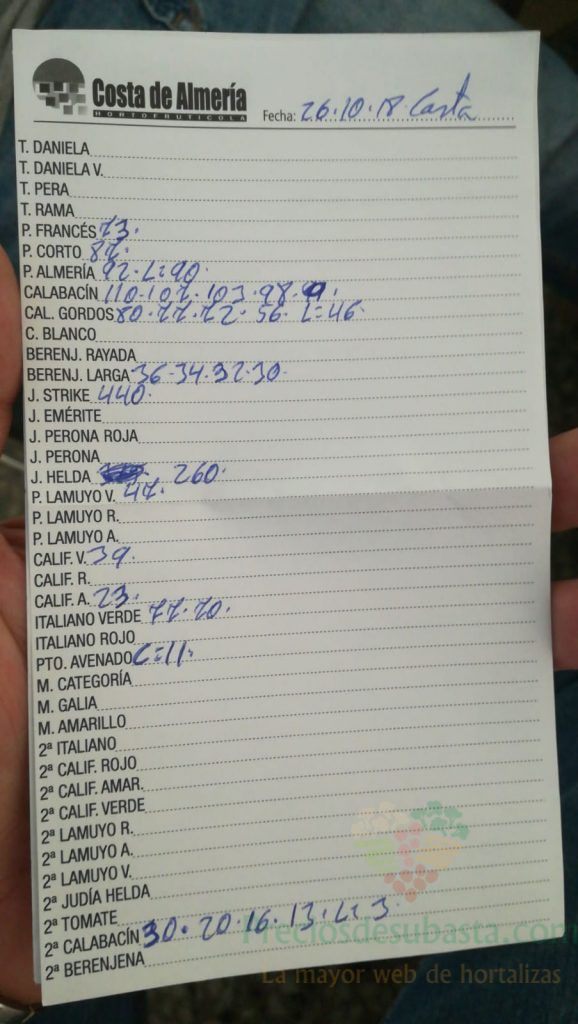 Costa de Almería
HORTOFRUTICOLA
Fecha: 26.10.18 Costa
T. DANIELA
T. DANIELA V.
T. PERA
T. RAMA
P. FRANCÉS 73.
P. CORTO 87.
P. ALMERÍA 92. L=90.
CALABACÍN 110.107.103.98.
CAL. GORDOS 80.77.72.56. L=46.
C. BLANCO
BERENJ. RAYADA
BERENJ. LARGA 36.34.32.30.
J. STRIKE 440.
J. EMÉRITE
J. PERONA ROJA
J. PERONA
J. HELDA 260.
P. LAMUYO V. 47.
P. LAMUYO R.
P. LAMUYO A.
CALIF. V. 39
CALIF. R.
CALIF. A. 23.
ITALIANO VERDE 77.70.
ITALIANO ROJO
PTO. AVENADO L=11.
M. CATEGORÍA
M. GALIA
M. AMARILLO
2ª ITALIANO
2ª CALIF. ROJO
2ª CALIF. AMAR.
2ª CALIF. VERDE
2ª LAMUYO R.
2ª LAMUYO A.
2ª LAMUYO V.
2ª JUDÍA HELDA
2ª TOMATE
2ª CALABACÍN 30.20.16.13. L=3.
2ª BERENJENA
Preciosdesubasta.com
La mayor web de hortalizas